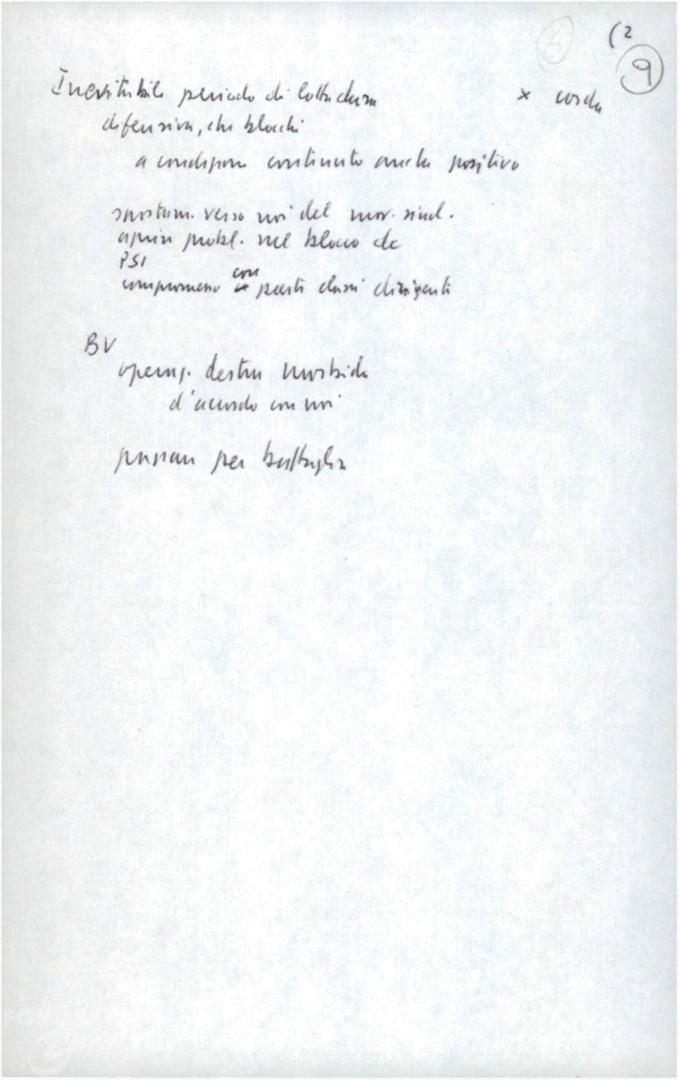 (2
9
Inevitabile periodo di lotta dura
difensiva, che blocchi
a condizione contenuto anche positivo
spostam. verso noi del mov. sind.
aprire probl. nel blocco dc
PSI
compromesso con parti classi dirigenti
BV
operaz. destra morbida
d'accordo con noi
passare per battaglia